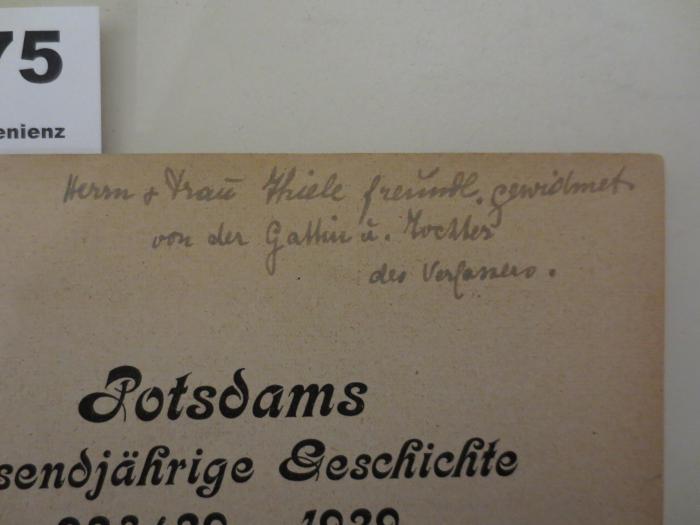 75
enienz
Herrn & Frau Thiele freundl. gewidmet
von der Gattin u. Tochter
des Verfassers.
Potsdams
sendjährige Geschichte
1939